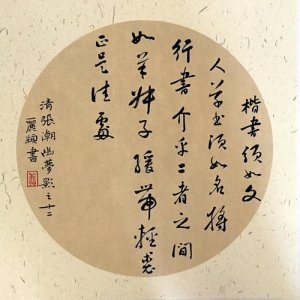 楷書須如文
人草書須如名將
行書介乎二者之間
如羊叔子緩帶輕裘
正是佳處
清張潮幽夢影之十二
麗
書